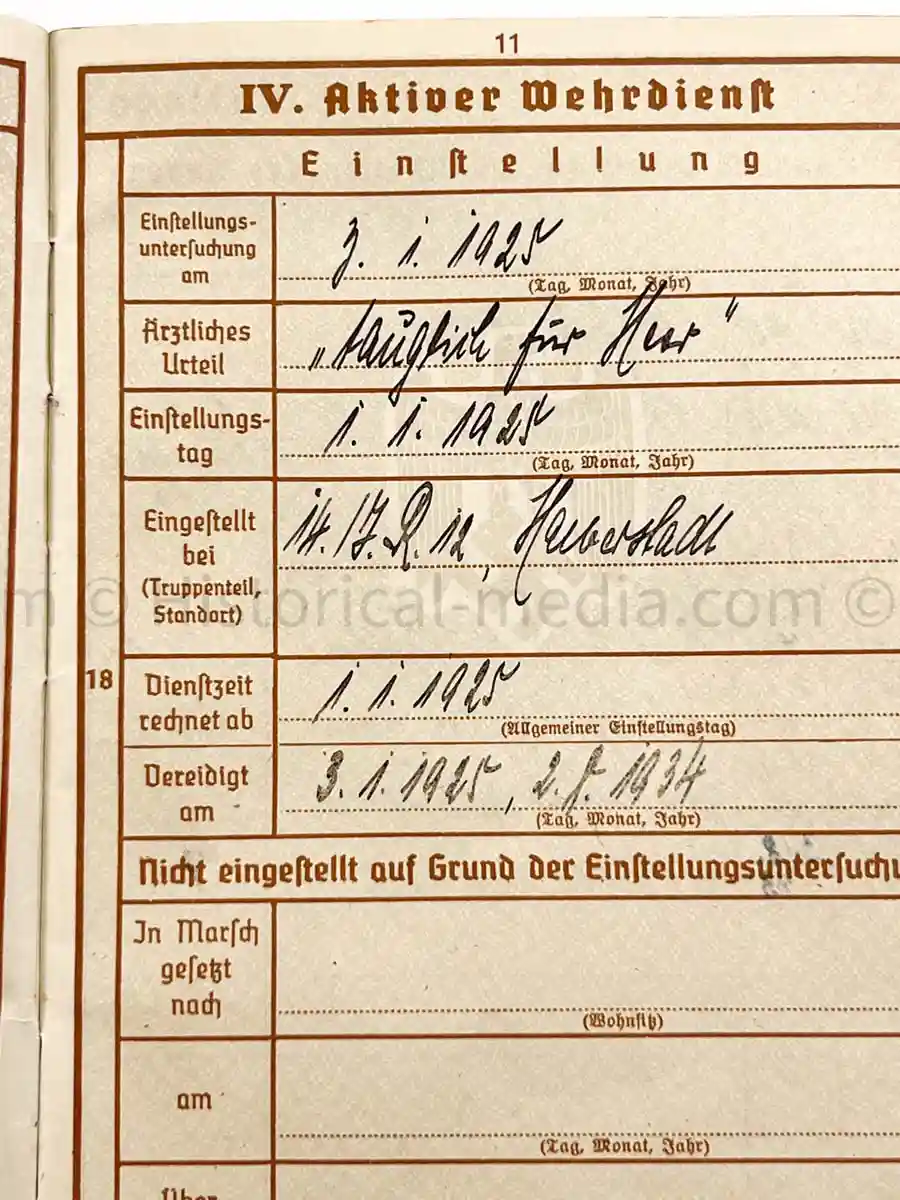 11
IV. Aktiver Wehrdienst
Einstellung
Einstellungs-
untersuchung
am
3. 1. 1925
(Tag, Monat, Jahr)
Ärztliches
Urteil
„tauglich für Heer"
Einstellungs-
tag
1. 1. 1925
(Tag, Monat, Jahr)
Eingestellt
bei
(Truppenteil,
Standort)
14./J.R. 12, Halberstadt
m © historical-media.com ©
18
Dienstzeit
rechnet ab
1. 1. 1925
(Allgemeiner Einstellungstag)
Vereidigt
am
3. 1. 1925, 2. 8. 1934
(Tag, Monat, Jahr)
Nicht eingestellt auf Grund der Einstellungsuntersuchu
In Marsch
gesetzt
nach
(Wohnsitz)
am
(Tag, Monat, Jahr)
Über